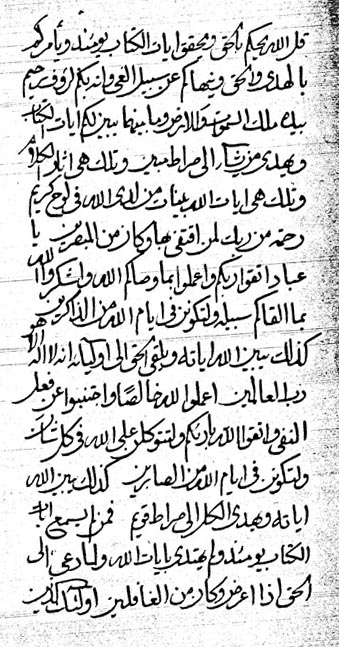 قل الله يحكم بالحق ويحقق ايات الكتاب يومئذ ويأمركم
بالهدى والحق وينهاكم عن سبيل الغي وانه بكم لرؤف رحيم
بيده ملك السموات والارض وما بينهما يبين لكم ايات الكتاب
ويهدي من يشاء الى صراط مبين وتلك هى اثار
وتلك هى ايات الله بينات من لدى الله في لوح كريم
رحمة من ربك لمن اقتفى بها وكان من المبصرين يا
عباد اتقوا ربكم واعملوا بما وصاكم الله واشكروا الله
بما القاكم سبيله ولتكونن في ايام الله من الذاكرين
كذلك يبين الله اياته ويلقى الحق الى اوليائه انه لا اله الا هو
رب العالمين اعملوا لله خالصا واجتنبوا عن فعل
النفى واتقوا الله بارئكم ولتتوكلن على الله في كل شأن
ولتكونن في ايام الله من الصابرين كذلك يبين الله
اياته ويهدى الكل الى صراط قويم فمن لم يسمع ايات
الكتاب يومئذ ولم يهتدى بايات الله ولما دعى الى
الحق اذا اعرض وكان من الغافلين اولئك الذين